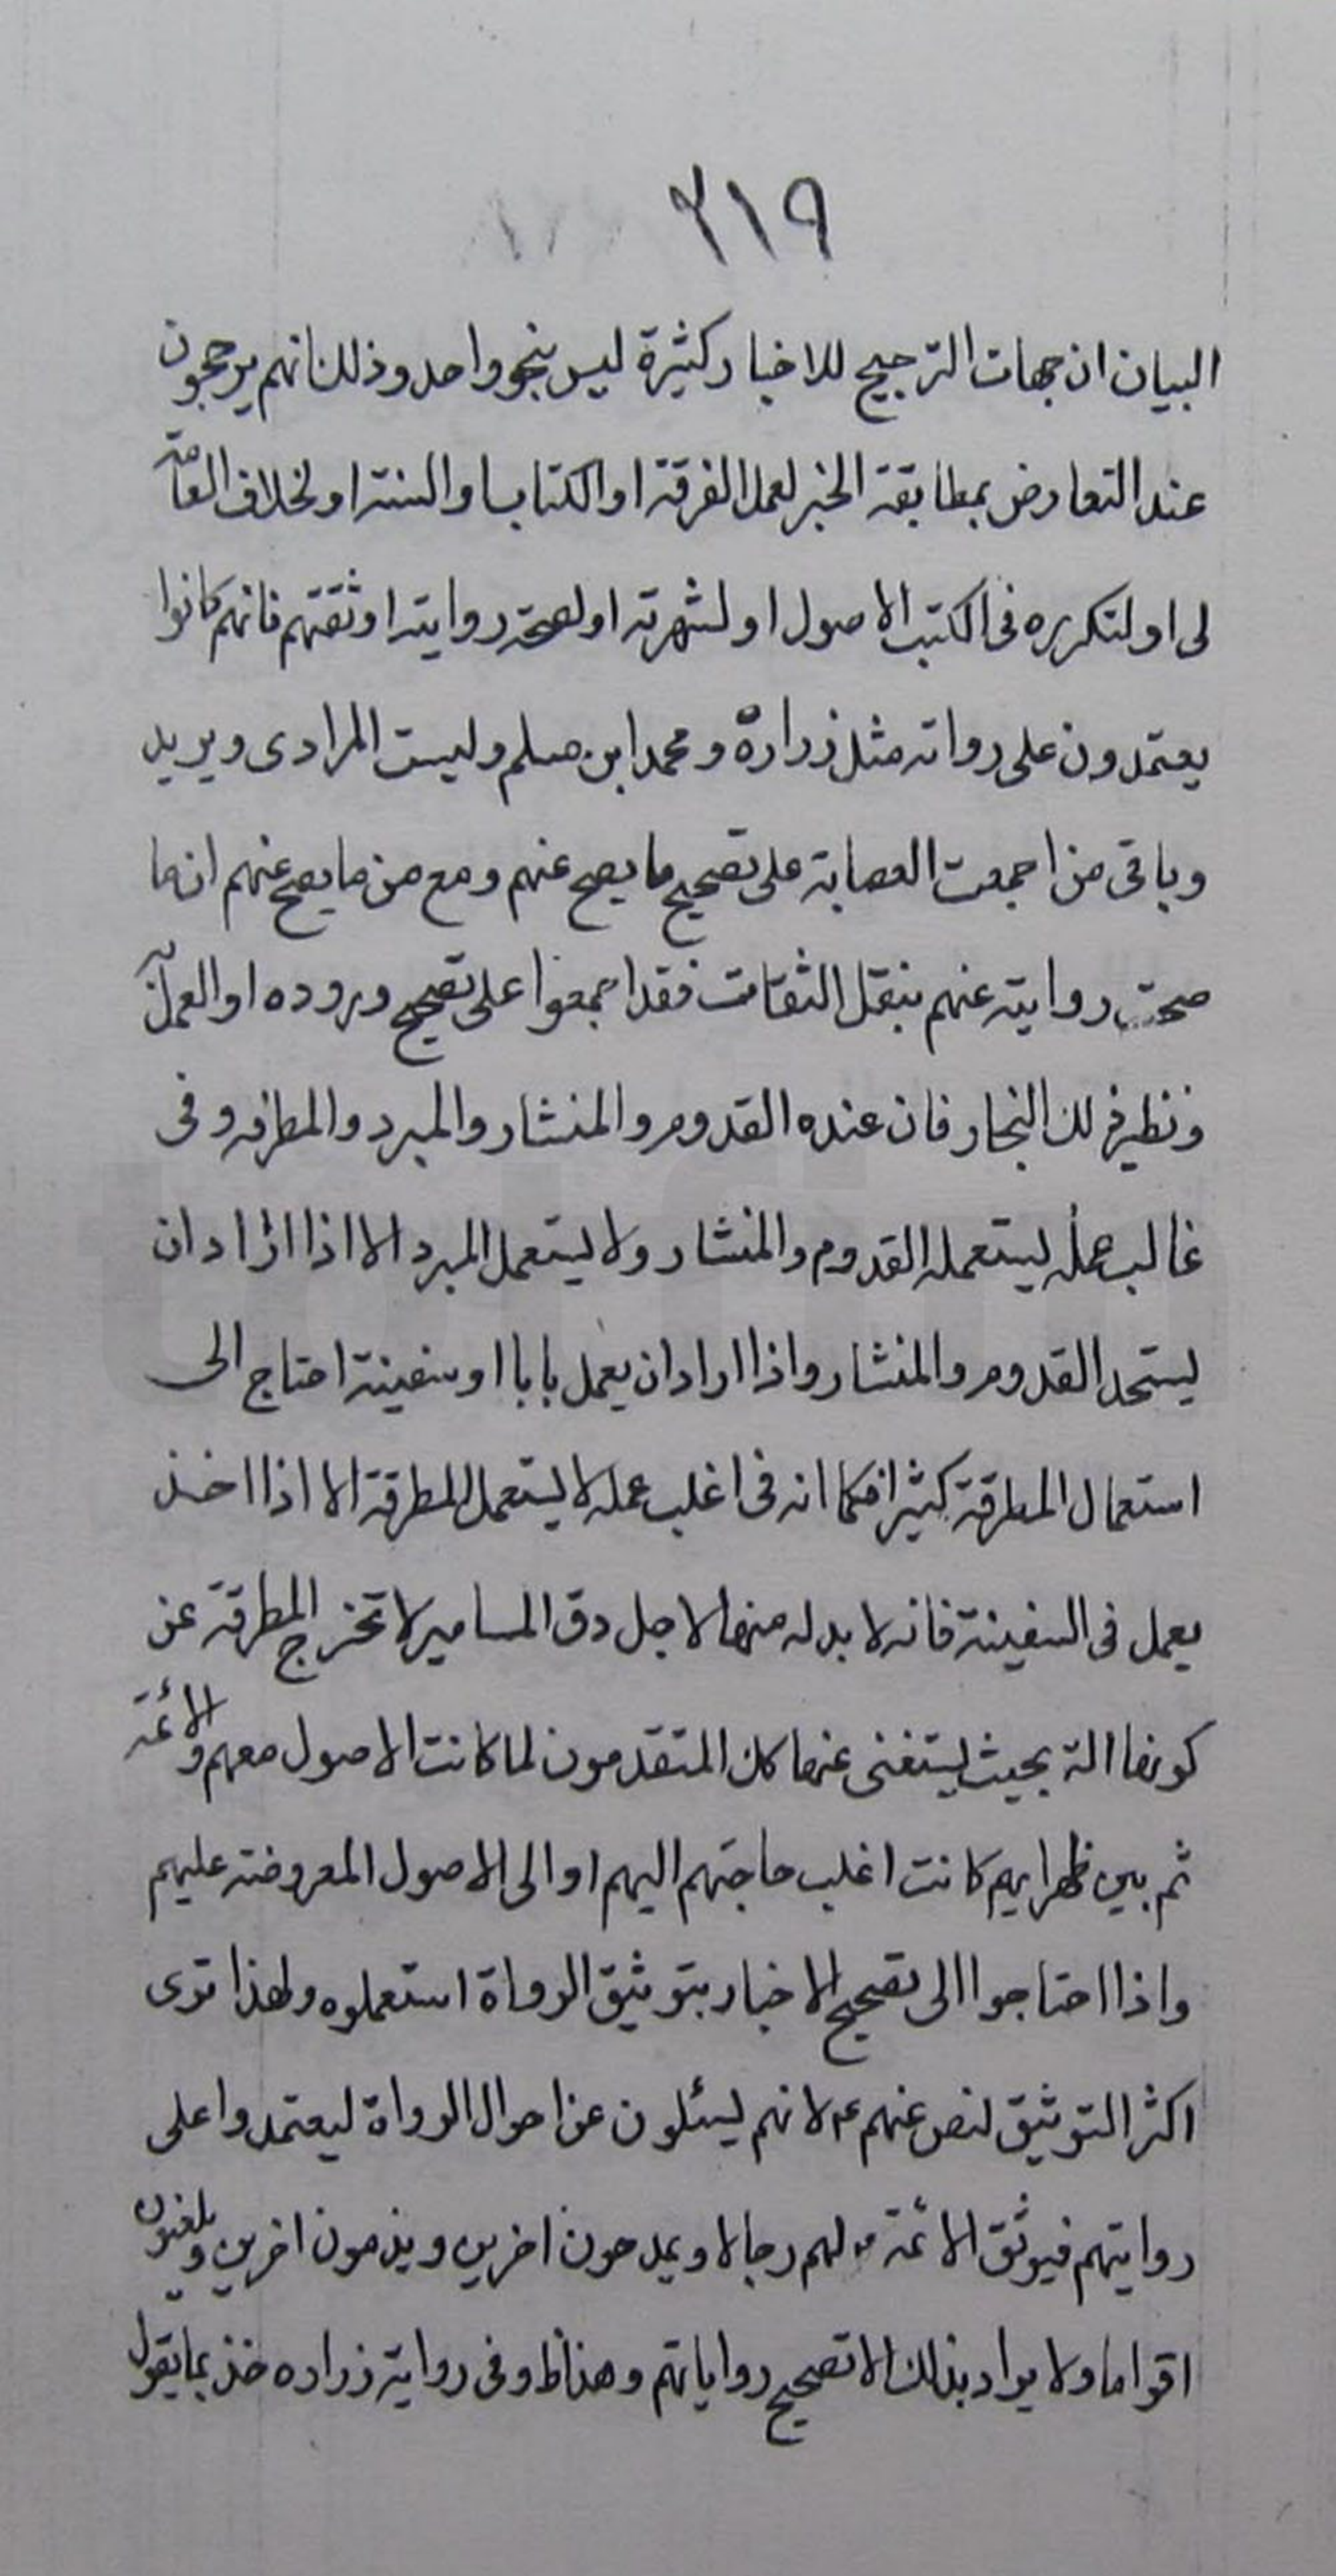 ٢١٩
البيان ان جهات الترجيح للاخبار كثيرة ليس بنحو واحد وذلك انهم يرجحون
عند التعارض بمطابقة الخبر لعمل الفرقة او الكتاب او السنة او لخلاف العامة
لى او لتكرره فى الكتب الاصول او لشهرته او لصحة روايته او ثقتهم فانهم كانوا
يعتمدون على رواته مثل زرارة و محمد ابن مسلم وليث المرادى و بريد
وباقى من اجمعت العصابة على تصحيح ما يصح عنهم ومع من ما يصح عنهم انما
صحت روايته عنهم بنقل الثقات فقد اجمعوا على تصحيح وروده او العمل به
و نظير ذلك النجار فان عنده القدوم والمنشار والمبرد والمطرقه و فى
غالب عمله يستعمله القدوم والمنشار ولا يستعمل المبرد الا اذا اراد ان
يستحد القدوم والمنشار واذا اراد ان يعمل بابا او سفينة احتاج الى
استعمال المطرقة كثيرا فكما انه فى اغلب عمله لا يستعمل المطرقة الا اذا اخذ
يعمل فى السفينة فانه لا بد له منها لاجل دق المسامير لا تخرج المطرقة عن
كونها الة بحيث يستغنى عنها كك المتقدمون لما كانت الاصول معهم والائمة
ثم بين ظهرايهم كانت اغلب حاجتهم اليهم او الى الاصول المعروضة عليهم
واذا احتاجوا الى تصحيح الاخبار بتوثيق الرواة استعملوه ولهذا ترى
اكثر التوثيق لنص عنهم ع لانهم يسئلون عن احوال الرواة ليعتمدوا على
روايتهم فيوثق الائمة لهم رجالا ويمدحون اخرين ويذمون اخرين و يلعنون
اقواما ولا يراد بذلك الا تصحيح رواياتهم وهذا ظ وفى رواية زراره خذ بما يقول